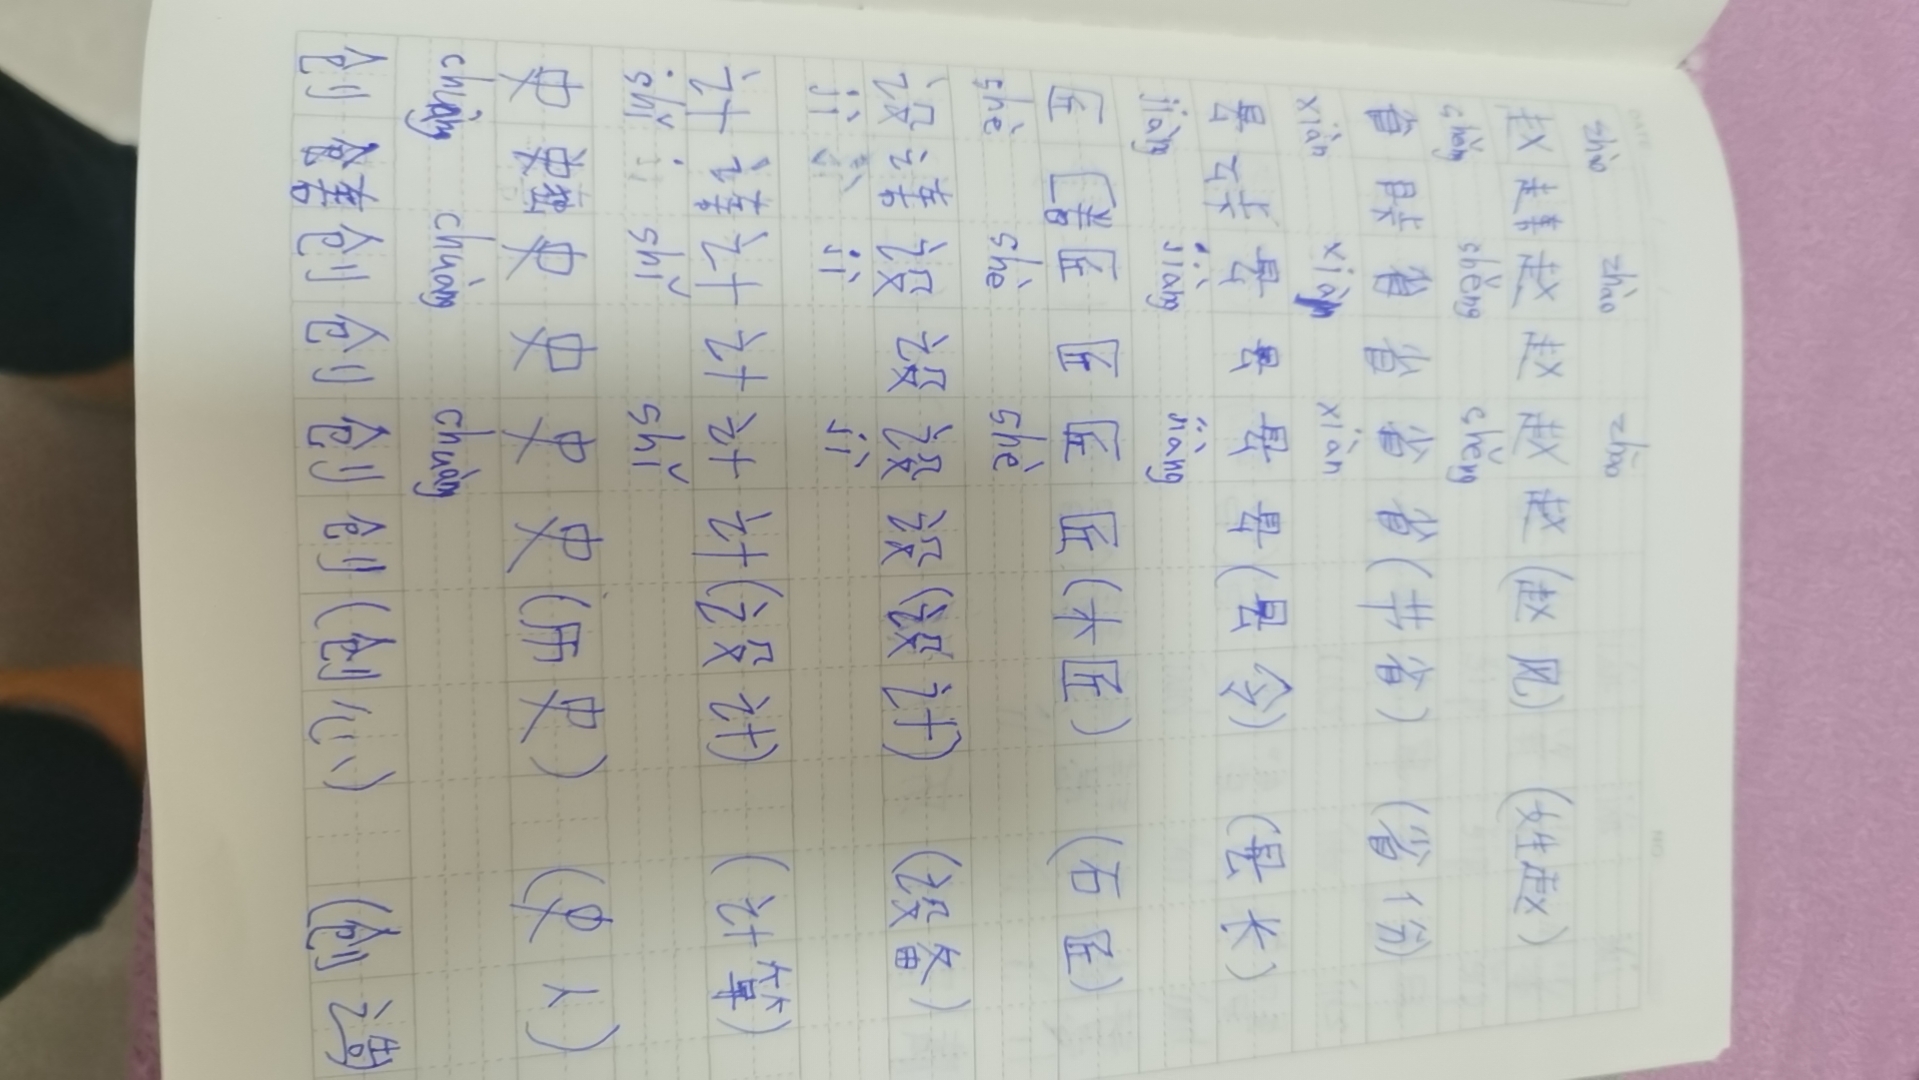 zhào zhào zhào
赵 赵 赵 赵 赵 (赵风) (姓赵)
shěng shěng shěng
省 省 省 省 省 (井省) (省份)
xiàn xiàn xiàn
县 县 县 县 县 (县令) (县长)
jiàng jiàng jiàng
匠 匠 匠 匠 匠 (木匠) (石匠)
shè shè shè
设 设 设 设 设 (设计) (设备)
jì jì jì
计 计 计 计 计 (设计) (计算)
shǐ shǐ shǐ
史 史 史 史 史 (历史) (史人)
chuàng chuàng chuàng
创 创 创 创 创 (创心) (创造